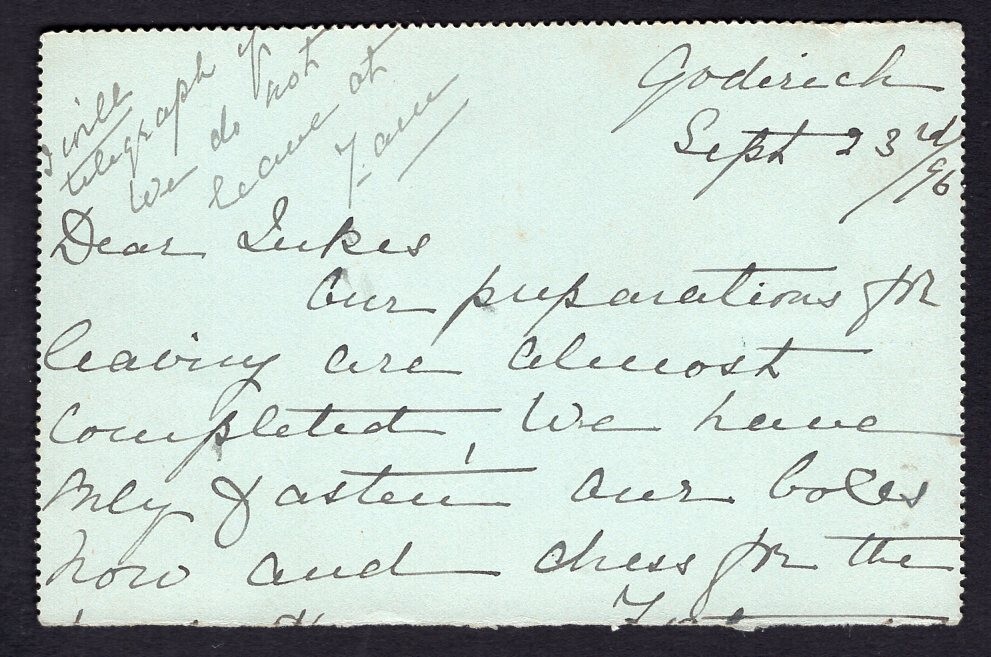 I will
telegraph if
we do not
leave at
7. am
Goderich
Sept 23rd/96
Dear Jukes
Our preparations for
leaving are almost
completed, We have
only to fasten our boxes
now and dress for the